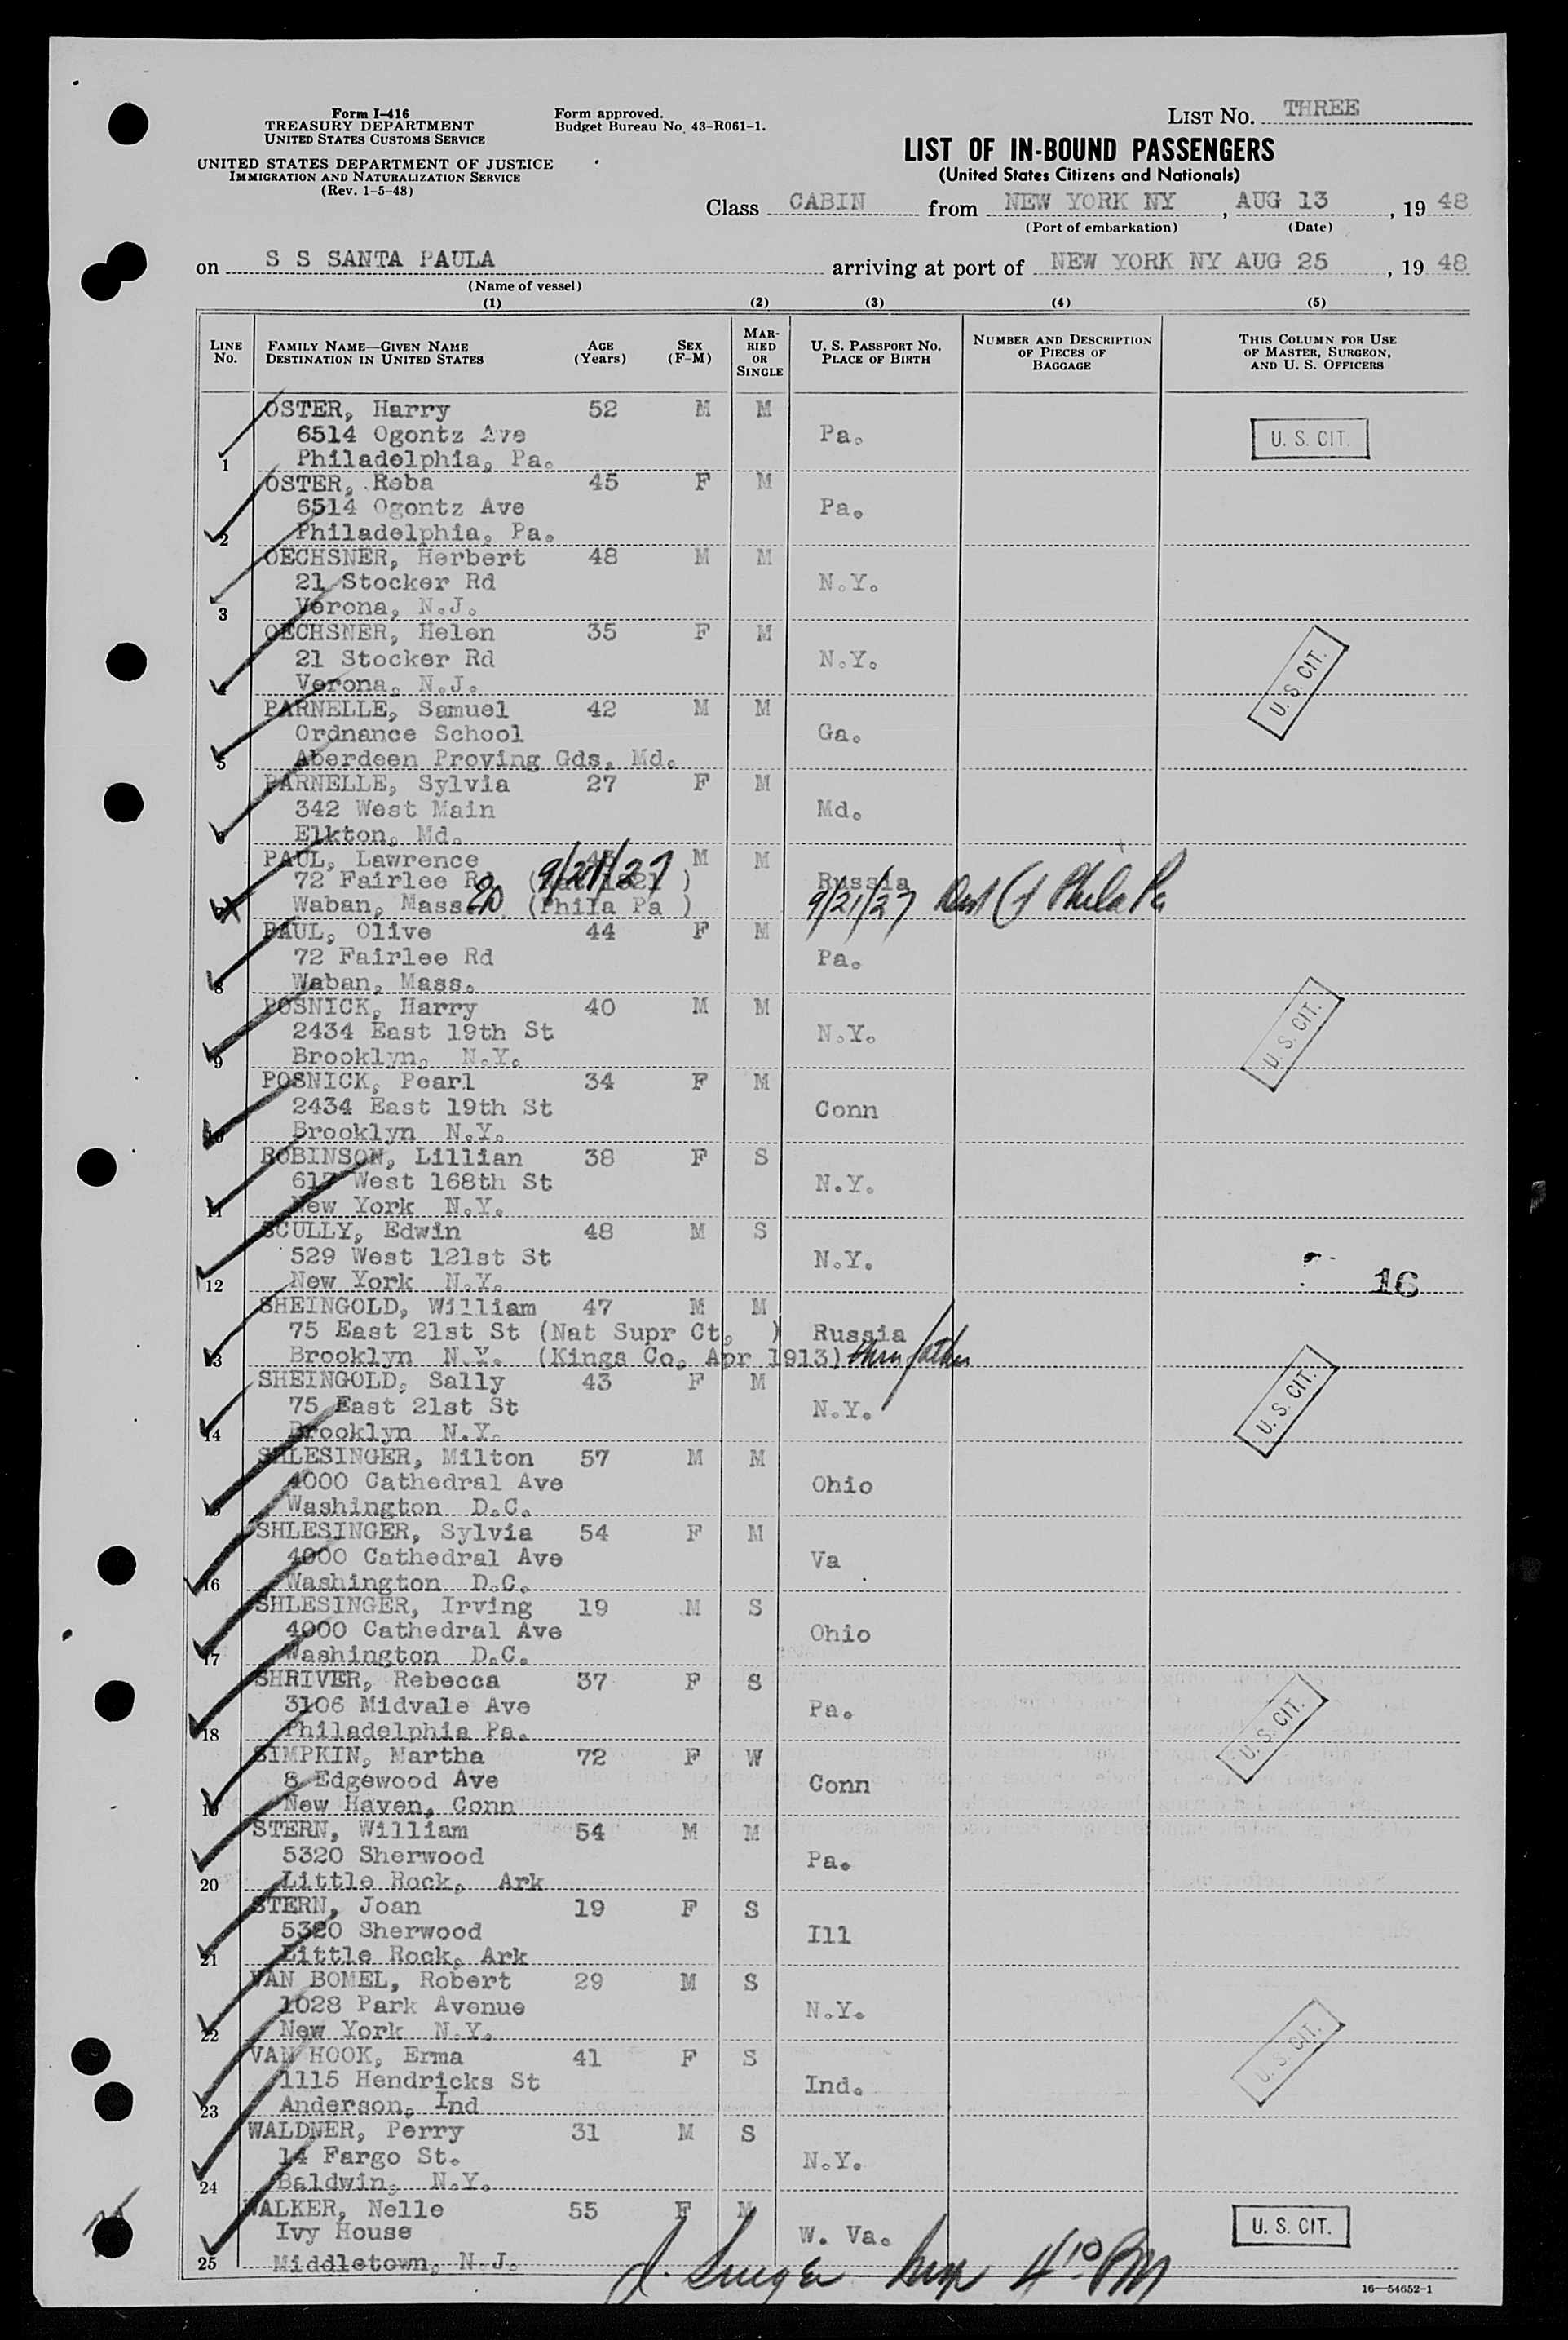 Form I-416
TREASURY DEPARTMENT
UNITED STATES CUSTOMS SERVICE
UNITED STATES DEPARTMENT OF JUSTICE
IMMIGRATION AND NATURALIZATION SERVICE
(Rev. 1-5-48)
Form approved.
Budget Bureau No. 43-R061-1.
LIST NO. THREE
LIST OF IN-BOUND PASSENGERS
(United States Citizens and Nationals)
Class CABIN from NEW YORK NY, AUG 13, 19 48
(Port of embarkation) (Date)
on S S SANTA PAULA arriving at port of NEW YORK NY AUG 25, 19 48
(Name of vessel)
(1) (2) (3) (4) (5)
LINE NO. FAMILY NAME—GIVEN NAME DESTINATION IN UNITED STATES AGE (Years) SEX (F-M) MARRIED OR SINGLE U. S. PASSPORT NO. PLACE OF BIRTH NUMBER AND DESCRIPTION OF PIECES OF BAGGAGE THIS COLUMN FOR USE OF MASTER, SURGEON, AND U. S. OFFICERS
OSTER, Harry 52 M M
6514 Ogontz Ave Pa. U. S. CIT.
1 Philadelphia, Pa.
OSTER, Reba 45 F M
6514 Ogontz Ave Pa.
2 Philadelphia, Pa.
OECHSNER, Herbert 48 M M
21 Stocker Rd N.Y.
3 Verona, N.J.
OECHSNER, Helen 35 F M
21 Stocker Rd N.Y. U. S. CIT.
Verona, N.J.
PARNELLE, Samuel 42 M M
Ordnance School Ga.
5 Aberdeen Proving Gds, Md.
PARNELLE, Sylvia 27 F M
342 West Main Md.
6 Elkton, Md.
PAUL, Lawrence M M
72 Fairlee Rd 9/21/27 Russia
Waban, Mass. (Phila Pa ) 9/21/27 Phila Pa
PAUL, Olive 44 F M
72 Fairlee Rd Pa.
8 Waban, Mass.
POSNICK, Harry 40 M M
2434 East 19th St N.Y. U. S. CIT.
9 Brooklyn, N.Y.
POSNICK, Pearl 34 F M
2434 East 19th St Conn
10 Brooklyn N.Y.
ROBINSON, Lillian 38 F S
617 West 168th St N.Y.
11 New York N.Y.
SCULLY, Edwin 48 M S
529 West 121st St N.Y. 16
12 New York N.Y.
SHEINGOLD, William 47 M M
75 East 21st St (Nat Supr Ct, ) Russia
13 Brooklyn N.Y. (Kings Co, Apr 1913) thru father
SHEINGOLD, Sally 43 F M
75 East 21st St N.Y. U. S. CIT.
14 Brooklyn N.Y.
SHLESINGER, Milton 57 M M
4000 Cathedral Ave Ohio
15 Washington D.C.
SHLESINGER, Sylvia 54 F M
4000 Cathedral Ave Va
16 Washington D.C.
SHLESINGER, Irving 19 M S
4000 Cathedral Ave Ohio
17 Washington D.C.
SHRIVER, Rebecca 37 F S
3106 Midvale Ave Pa. U. S. CIT.
18 Philadelphia Pa.
SIMPKIN, Martha 72 F W
8 Edgewood Ave Conn
19 New Haven, Conn
STERN, William 54 M M
5320 Sherwood Pa.
20 Little Rock, Ark
STERN, Joan 19 F S
5320 Sherwood Ill
21 Little Rock, Ark
VAN BOMEL, Robert 29 M S
1028 Park Avenue N.Y.
22 New York N.Y.
VAN HOOK, Erma 41 F S
1115 Hendricks St Ind. U. S. CIT.
23 Anderson, Ind
WALDNER, Perry 31 M S
14 Fargo St. N.Y.
24 Baldwin, N.Y.
WALKER, Nelle 55 F M
Ivy House W. Va. U. S. CIT.
25 Middletown, N.J.
4 10 PM
16—54652-1